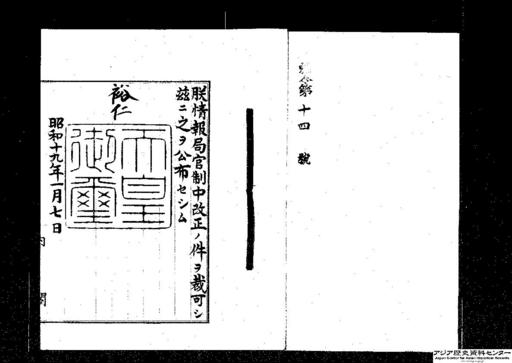 勅令第十四號
朕情報局官制中改正ノ件ヲ裁可シ
茲ニ之ヲ公布セシム
裕仁
天皇
御璽
昭和十九年一月七日
内閣
アジア歴史資料センター
Japan Center for Asian Historical Records